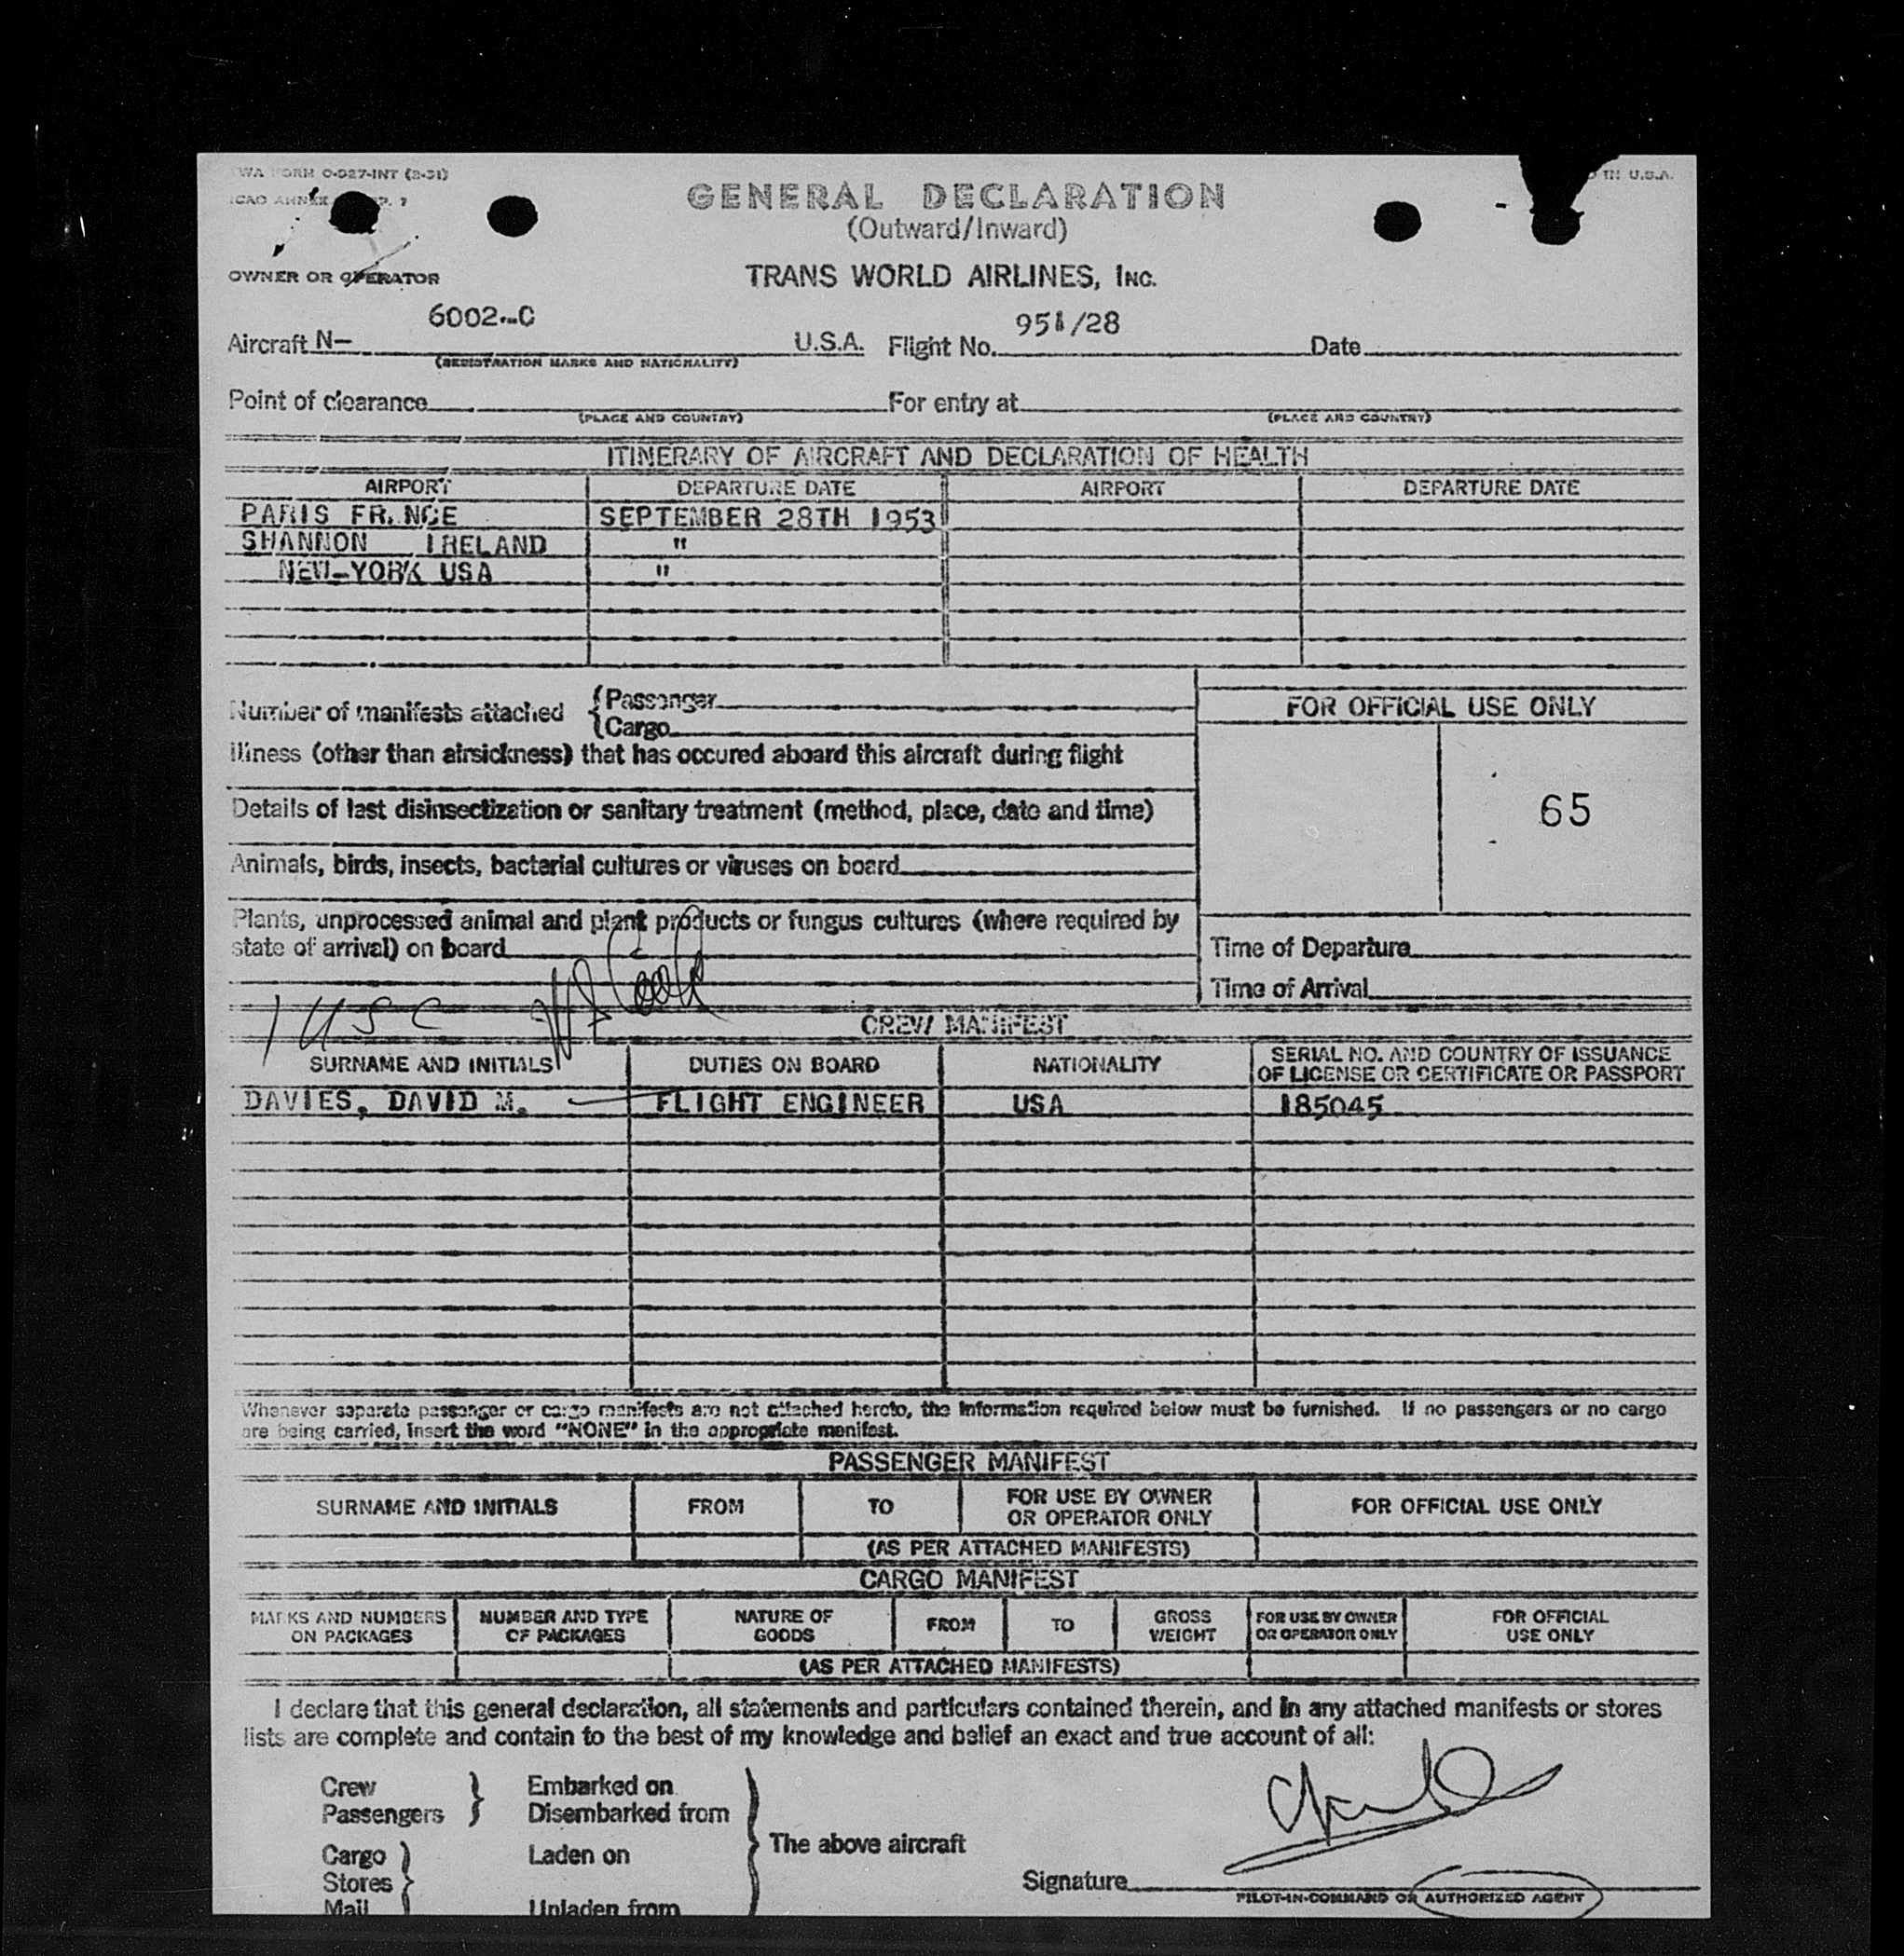 TWA FORM O-927-INT (2-51)
ICAO ANNEX P. 7
IN U.S.A.
GENERAL DECLARATION
(Outward/Inward)
OWNER OR OPERATOR TRANS WORLD AIRLINES, INC.
6002-C 951/28
Aircraft N- U.S.A. Flight No. Date
(REGISTRATION MARKS AND NATIONALITY)
Point of clearance For entry at
(PLACE AND COUNTRY) (PLACE AND COUNTRY)
ITINERARY OF AIRCRAFT AND DECLARATION OF HEALTH
AIRPORT DEPARTURE DATE AIRPORT DEPARTURE DATE
PARIS FR.NCE SEPTEMBER 28TH 1953
SHANNON IRELAND "
NEW-YORK USA "
Number of manifests attached {Passenger
{Cargo
FOR OFFICIAL USE ONLY
Illness (other than airsickness) that has occured aboard this aircraft during flight
Details of last disinsectization or sanitary treatment (method, place, date and time)
65
Animals, birds, insects, bacterial cultures or viruses on board
Plants, unprocessed animal and plant products or fungus cultures (where required by
state of arrival) on board
Time of Departure
Time of Arrival
1 USC
CREW MANIFEST
SURNAME AND INITIALS DUTIES ON BOARD NATIONALITY SERIAL NO. AND COUNTRY OF ISSUANCE
OF LICENSE OR CERTIFICATE OR PASSPORT
DAVIES, DAVID M. FLIGHT ENGINEER USA 185045
Whenever separate passenger or cargo manifests are not attached hereto, the information required below must be furnished. If no passengers or no cargo
are being carried, insert the word "NONE" in the appropriate manifest.
PASSENGER MANIFEST
SURNAME AND INITIALS FROM TO FOR USE BY OWNER
OR OPERATOR ONLY FOR OFFICIAL USE ONLY
(AS PER ATTACHED MANIFESTS)
CARGO MANIFEST
MARKS AND NUMBERS
ON PACKAGES NUMBER AND TYPE
OF PACKAGES NATURE OF
GOODS FROM TO GROSS
WEIGHT FOR USE BY OWNER
OR OPERATOR ONLY FOR OFFICIAL
USE ONLY
(AS PER ATTACHED MANIFESTS)
I declare that this general declaration, all statements and particulars contained therein, and in any attached manifests or stores
lists are complete and contain to the best of my knowledge and belief an exact and true account of all:
Crew Embarked on
Passengers Disembarked from
The above aircraft
Cargo Laden on
Stores
Mail Unladen from
Signature
PILOT-IN-COMMAND OR AUTHORIZED AGENT